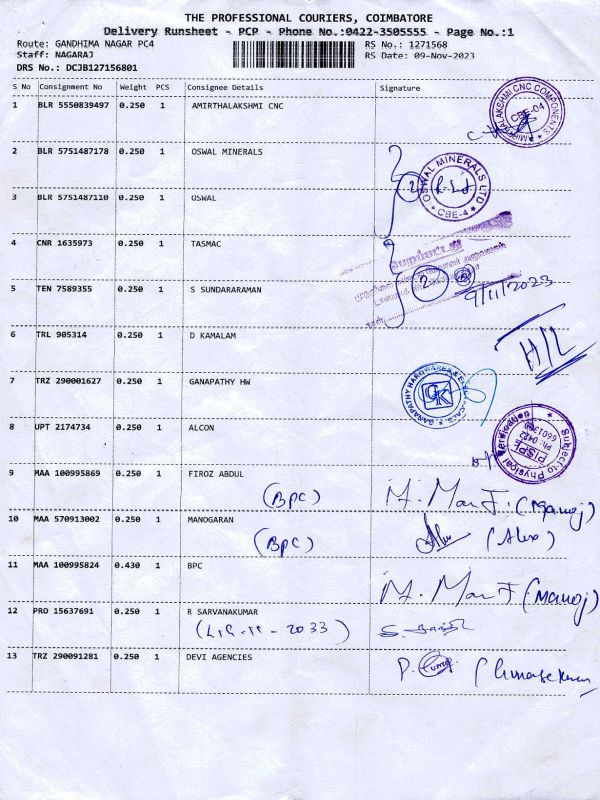 THE PROFESSIONAL COURIERS, COIMBATORE
Delivery Runsheet - PCP - Phone No.:0422-3505555 - Page No.:1
Route: GANDHIMA NAGAR PC4 RS No.: 1271568
Staff: NAGARAJ RS Date: 09-Nov-2023
DRS No.: DCJB127156801
S No Consignment No Weight PCS Consignee Details Signature
1 BLR 5550839497 0.250 1 AMIRTHALAKSHMI CNC
AMIRTHALAKSHMI CNC COMPONENTS
CBE-04
2 BLR 5751487178 0.250 1 OSWAL MINERALS
2
OSWAL MINERALS LTD
CBE-4
3 BLR 5751487110 0.250 1 OSWAL
4 CNR 1635973 0.250 1 TASMAC
2
5 TEN 7589355 0.250 1 S SUNDARARAMAN
9/11/2023
6 TRL 905314 0.250 1 D KAMALAM
H/L
7 TRZ 290001627 0.250 1 GANAPATHY HW
GK
8 UPT 2174734 0.250 1 ALCON
Subject to Physical Verification
9 MAA 100995869 0.250 1 FIROZ ABDUL
(BPC)
10 MAA 570913002 0.250 1 MANOGARAN
(BPC) (Alex)
11 MAA 100995824 0.430 1 BPC
(Manoj)
12 PRO 15637691 0.250 1 R SARVANAKUMAR
13 TRZ 290091281 0.250 1 DEVI AGENCIES